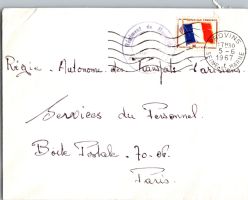 PROVINS
17H30
5-6
1967
Régie Autonome des Transports Parisiens
Services du Personnel
Boite Postale - 70-06.
Paris.